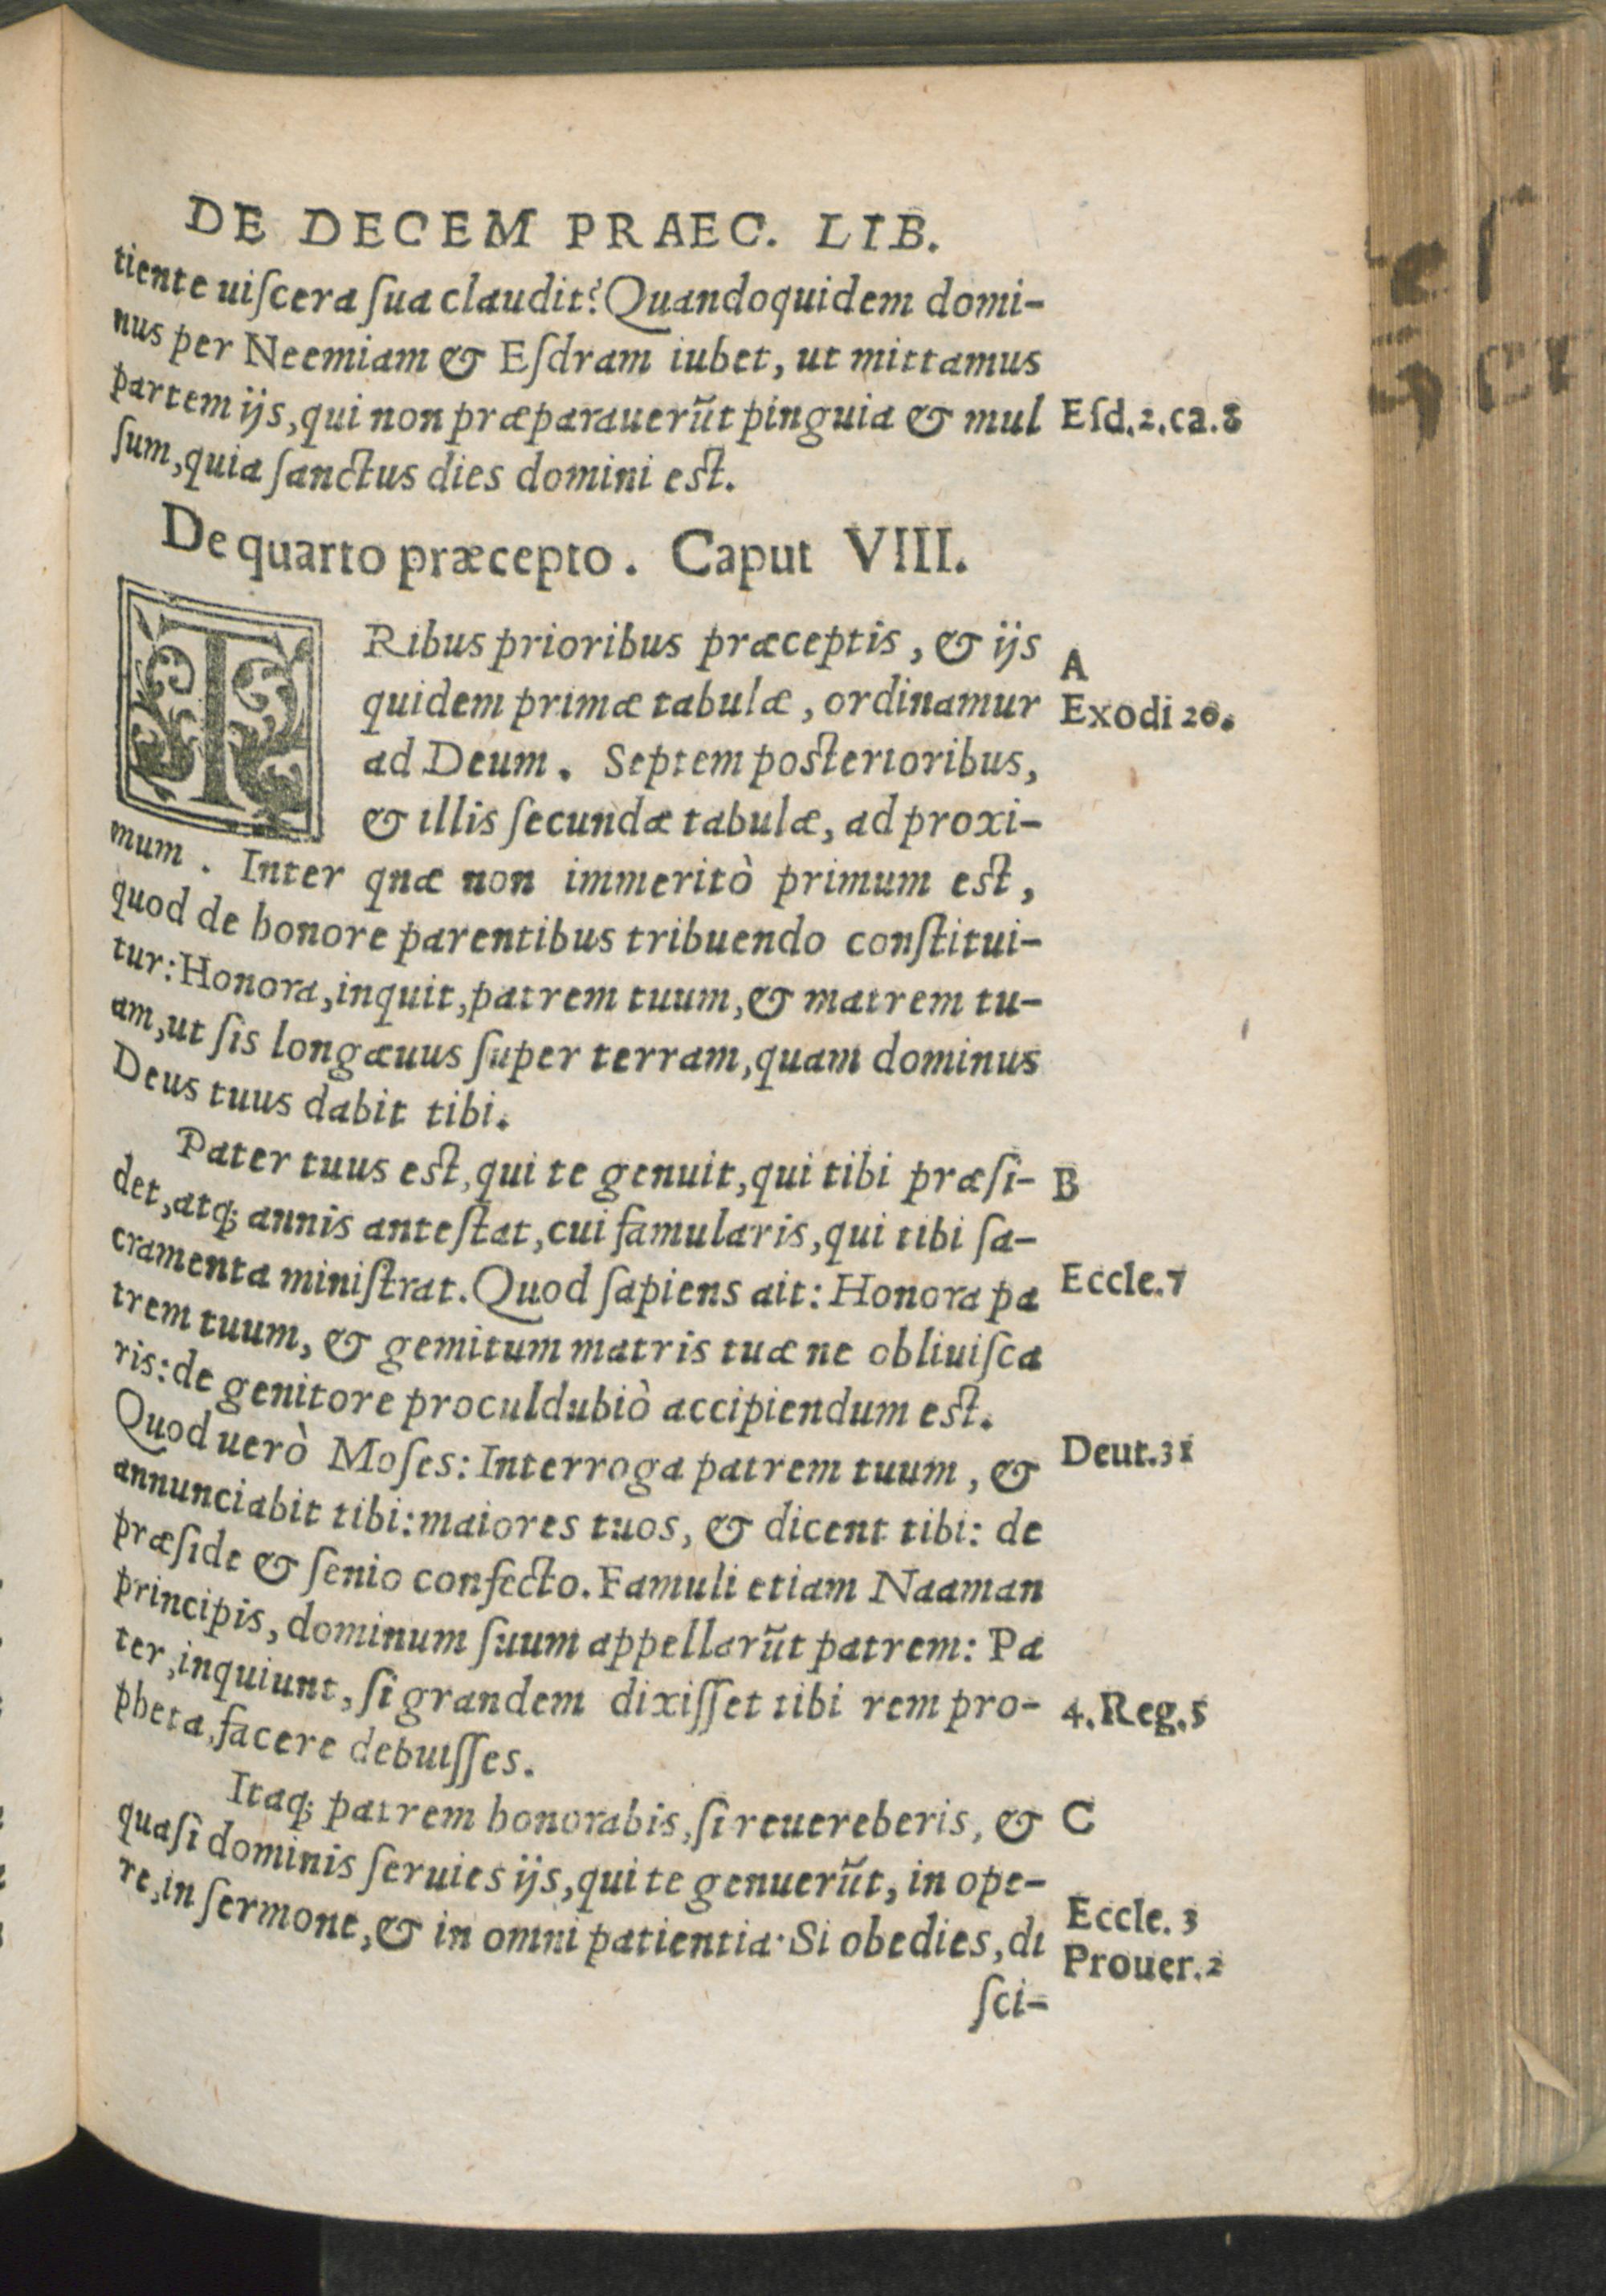 DE DECEM PRAEC. LIB.
tiente uiſcera ſua claudit? Quandoquidem domi-
nus per Neemiam & Eſdram iubet, ut mittamus
partem ijs, qui non præparauerũt pinguia & mul
Eſd.2.ca.8
ſum, quia ſanctus dies domini est.
De quarto præcepto. Caput VIII.
TRibus prioribus præceptis, & ijs
A
quidem primæ tabulæ, ordinamur
Exodi 20.
ad Deum. Septem posterioribus,
& illis ſecundæ tabulæ, ad proxi-
mum. Inter qnæ non immeritò primum est,
quod de honore parentibus tribuendo conſtitui-
tur: Honora, inquit, patrem tuum, & matrem tu-
am, ut ſis longæuus ſuper terram, quam dominus
Deus tuus dabit tibi.
Pater tuus est, qui te genuit, qui tibi præſi-
B
det, atq; annis anteſtat, cui famularis, qui tibi ſa-
cramenta miniſtrat. Quod ſapiens ait: Honora pa
Eccle.7
trem tuum, & gemitum matris tuæ ne obliuiſca
ris: de genitore proculdubiò accipiendum est.
Quod uerò Moſes: Interroga patrem tuum, &
Deut.31
annunciabit tibi: maiores tuos, & dicent tibi: de
præſide & ſenio confecto. Famuli etiam Naaman
principis, dominum ſuum appellarũt patrem: Pa
ter, inquiunt, ſi grandem dixiſſet tibi rem pro-
4.Reg.5
pheta, facere debuiſſes.
Itaq; patrem honorabis, ſi reuereberis, &
C
quaſi dominis ſeruies ijs, qui te genuerũt, in ope-
re, in ſermone, & in omni patientia. Si obedies, di
Eccle. 3
Prouer.2
ſci-